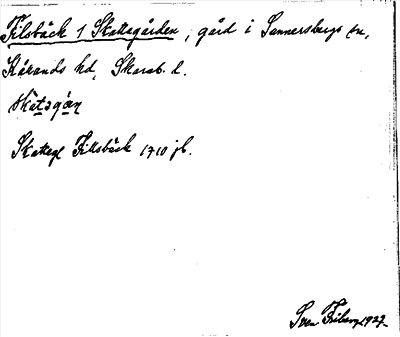 Filsbäck 1 Skattegården, gård i Sunnersbergs sn,
Kålands hd, Skarab. l.
skat̲ag̲å̲n
Skatteg Filsbäck 1710 jb.
Sven Friberg 1927